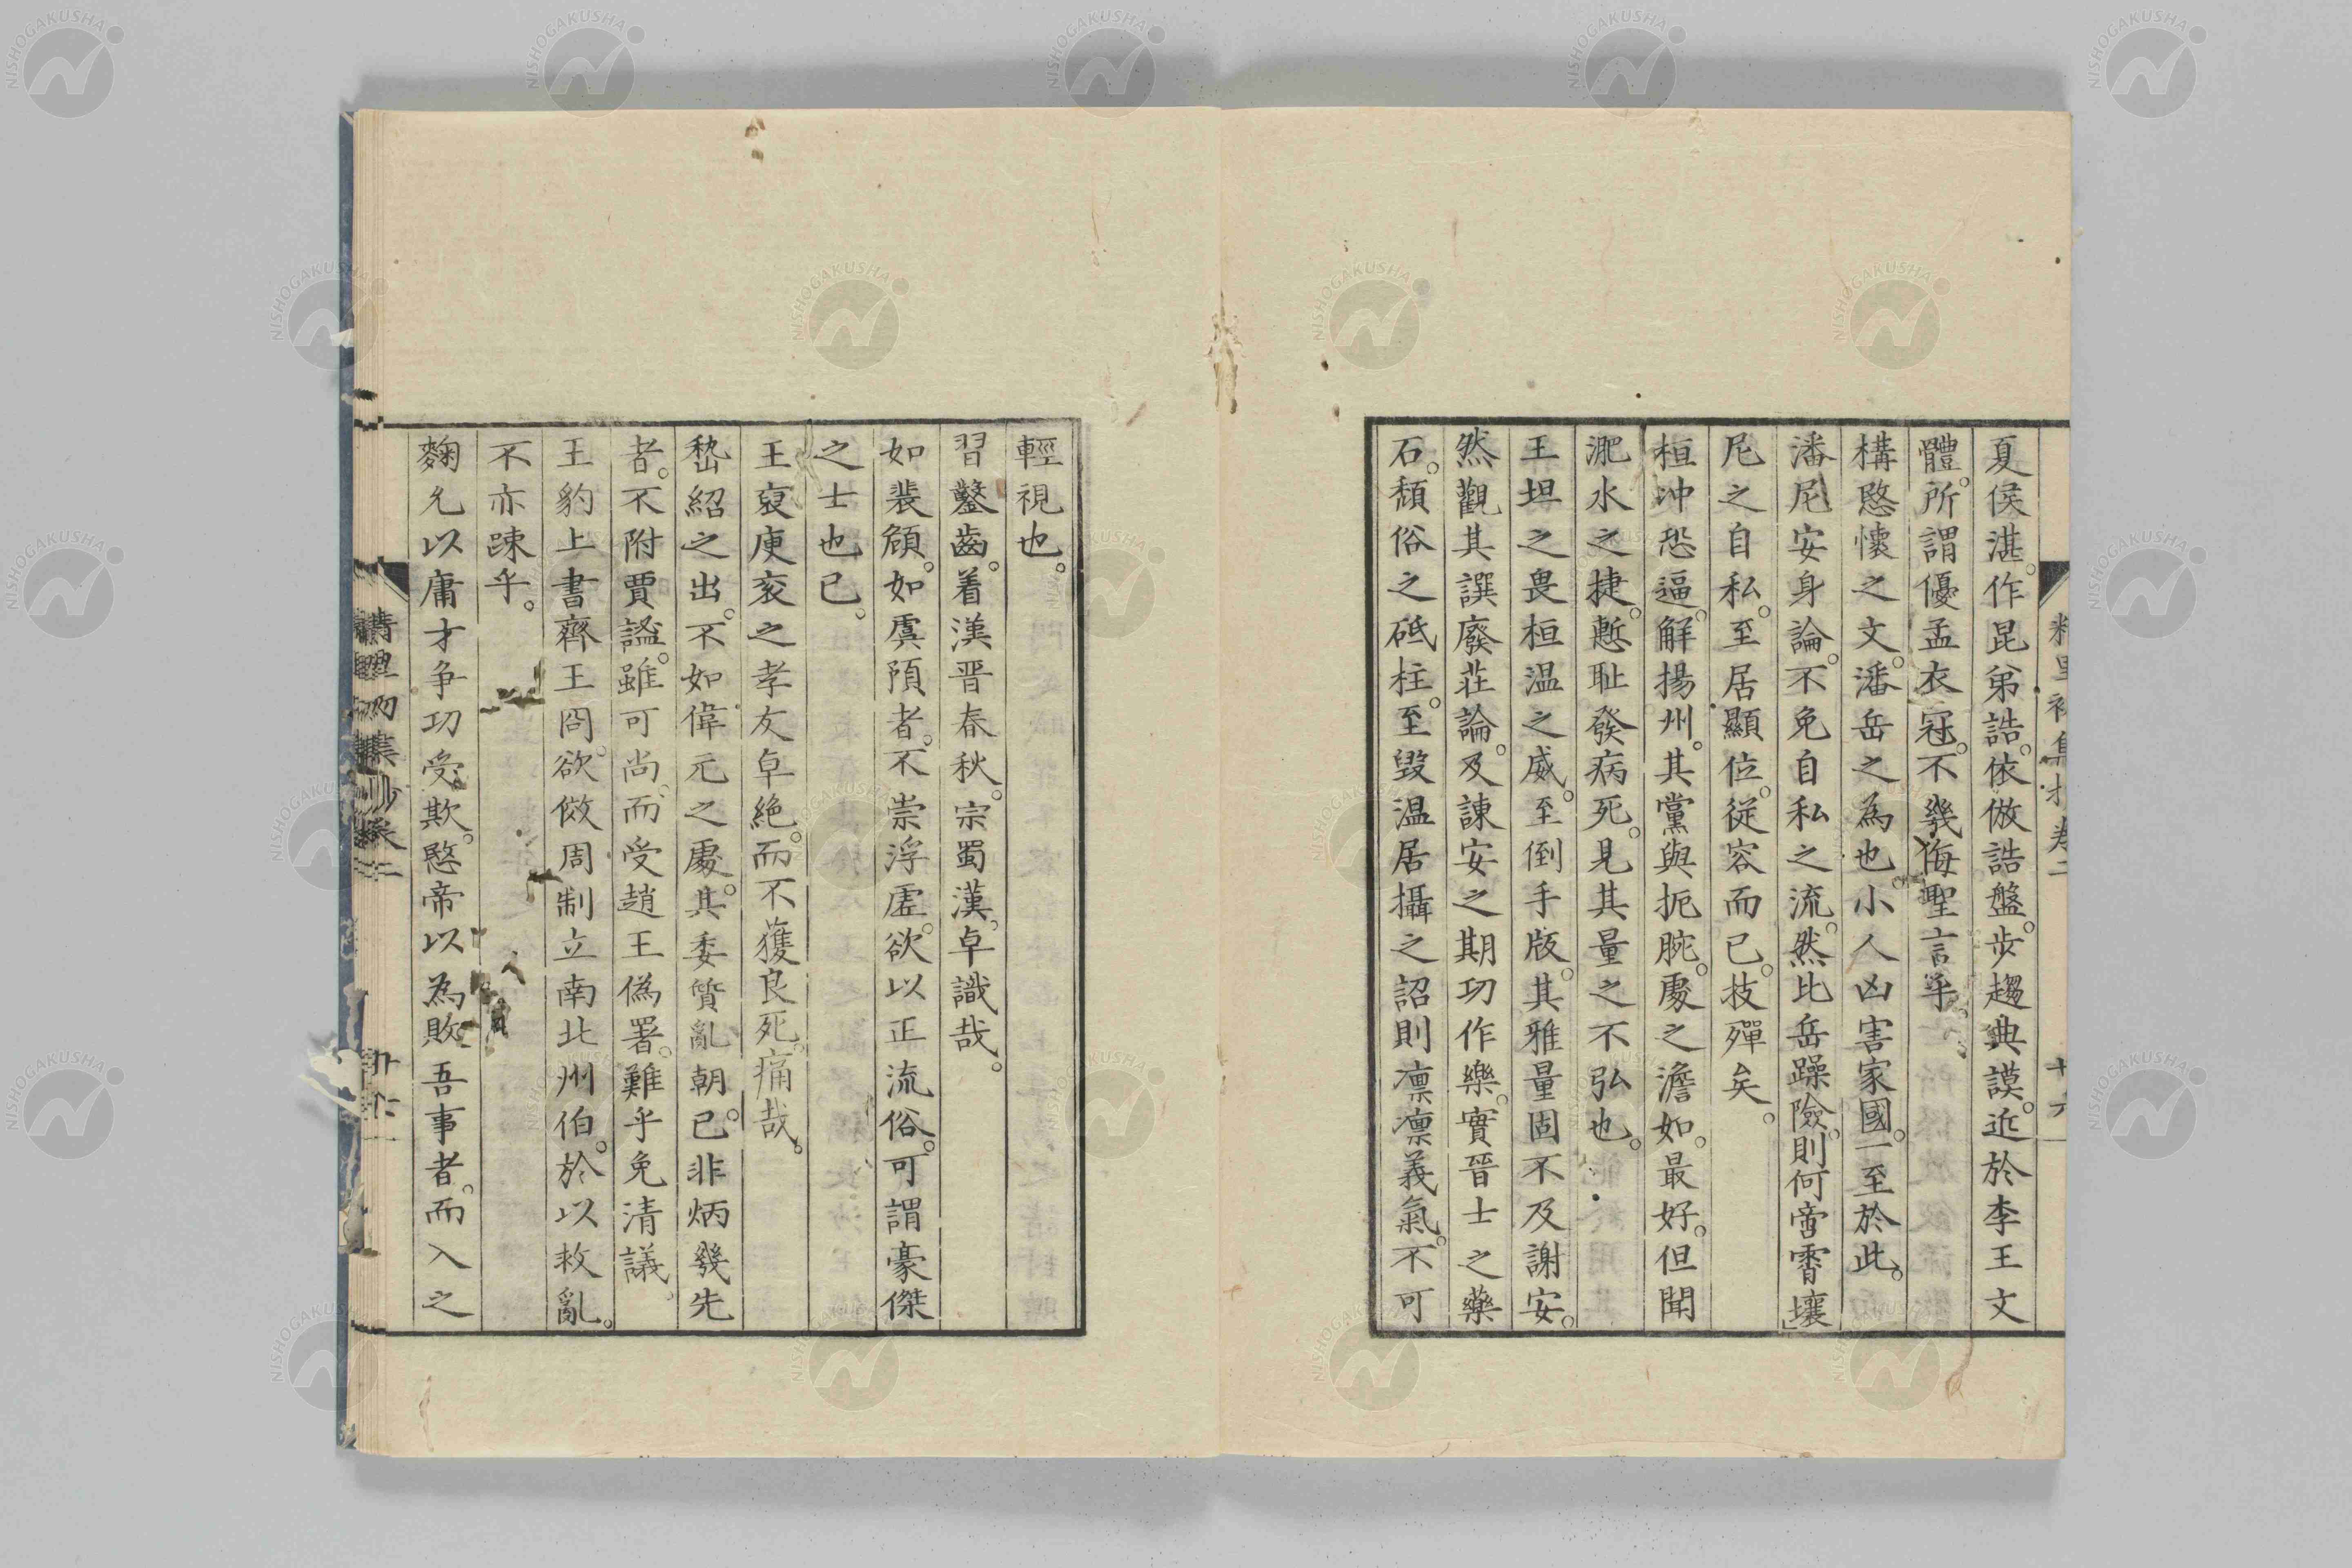 夏侯湛。作昆弟誥。依倣誥盤。步趨典謨。近於李王文
體。所謂優孟衣冠。不幾侮聖言乎。
構愍懷之文。潘岳之為也。小人凶害家國。一至於此。
潘尼安身論。不免自私之流。然比岳躁險。則何啻霄壤」
尼之自私。至居顯位。從容而已。技殫矣。
桓沖恐逼。解揚州。其黨與扼腕。處之澹如。最好。但聞
淝水之捷。慙耻發病死。見其量之不弘也。
王坦之畏桓温之威。至倒手版。其雅量固不及謝安。
然觀其譔廢莊論。及諫安之期功作樂。實晉士之藥
石。頽俗之砥柱。至毀温居攝之詔則凛凛義氣。不可
輕視也。
習鑿齒。着漢晋春秋。宗蜀漢。卓識哉。
如裴頠。如虞預者。不崇浮虛。欲以正流俗。可謂豪傑
之士也已。
王裒庾衮之孝友卓絶。而不獲良死。痛哉。
嵇紹之出。不如偉元之處。其委質亂朝。已非炳幾先
者。不附賈謐。雖可尚。而受趙王僞署。難乎免清議。
王豹上書齊王冏。欲倣周制立南北州伯。於以救亂。
不亦踈乎。
麴允以庸才争功受欺。愍帝以為敗吾事者。而入之